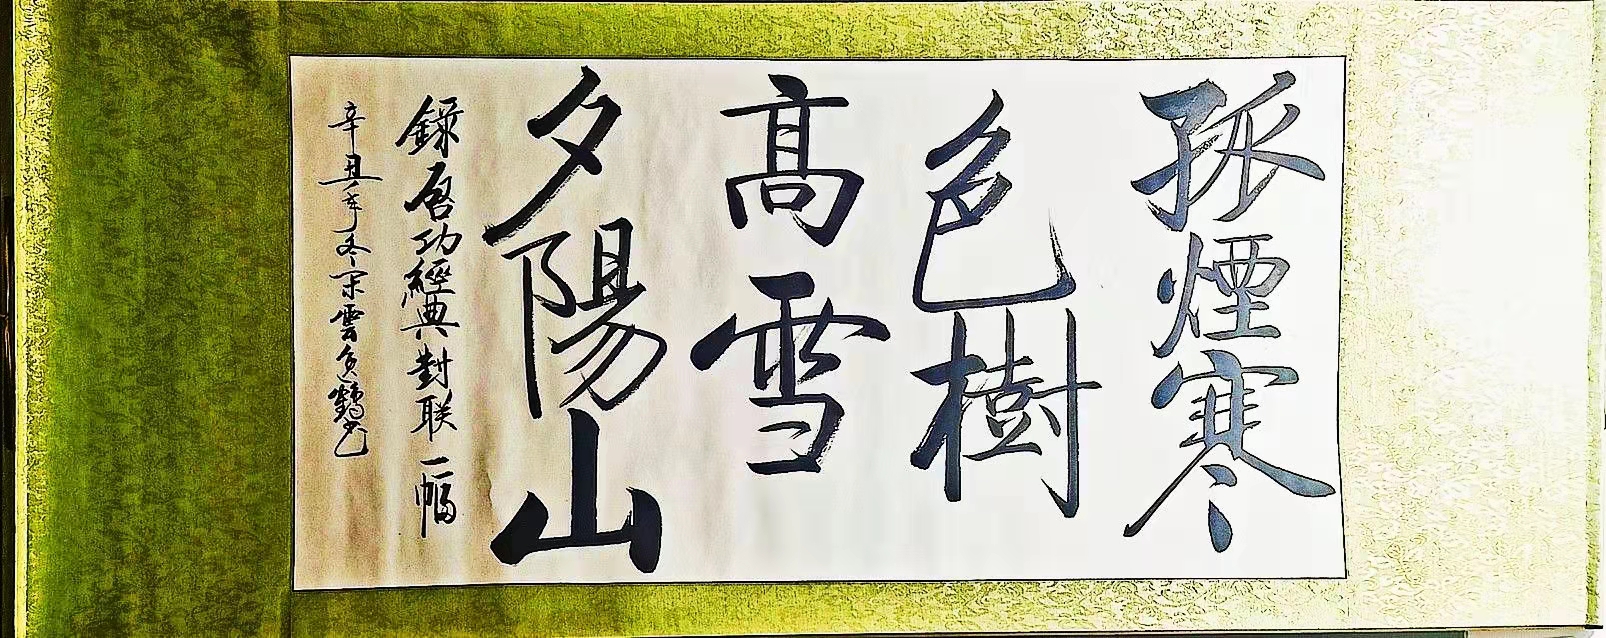 孤煙寒
色樹
高雪
夕陽山
錄啓功經典對联一幅
辛丑年冬宋雲